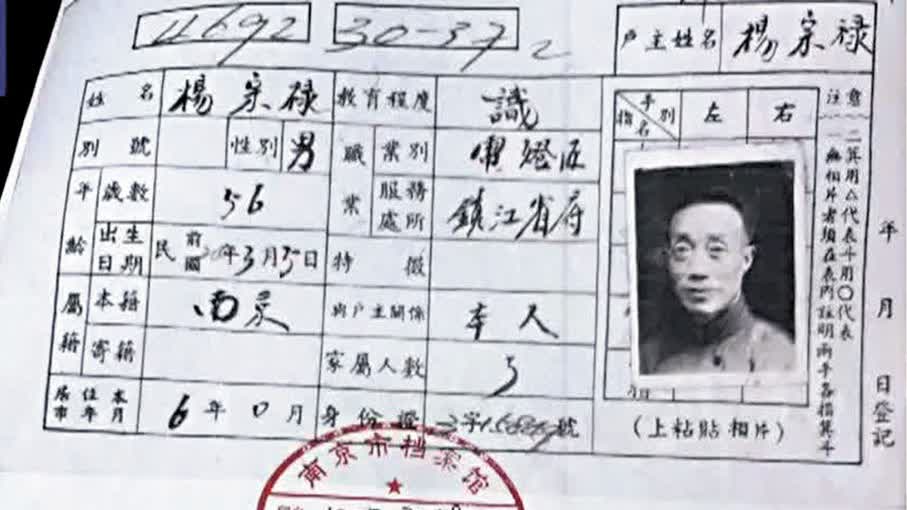 11692 30-37 2 戶主姓名 楊宗祿
姓名 楊宗祿 教育程度 識
別號 性別 男 職業 業別
年齡 歲數 56 服務處所 鎮江省府
出生日期 民國前 年3月5日 特徵
屬籍 本籍 南京 與戶主關係 本人
寄籍 家屬人數 5
居住本市年月 6年0月 身份證 字 號
手別 指名 左 右
(上粘貼相片)
注意 一 二
無相片者須在表內註明兩手各指箕斗
箕用△代表斗用○代表
年月日登記
南京市档案馆